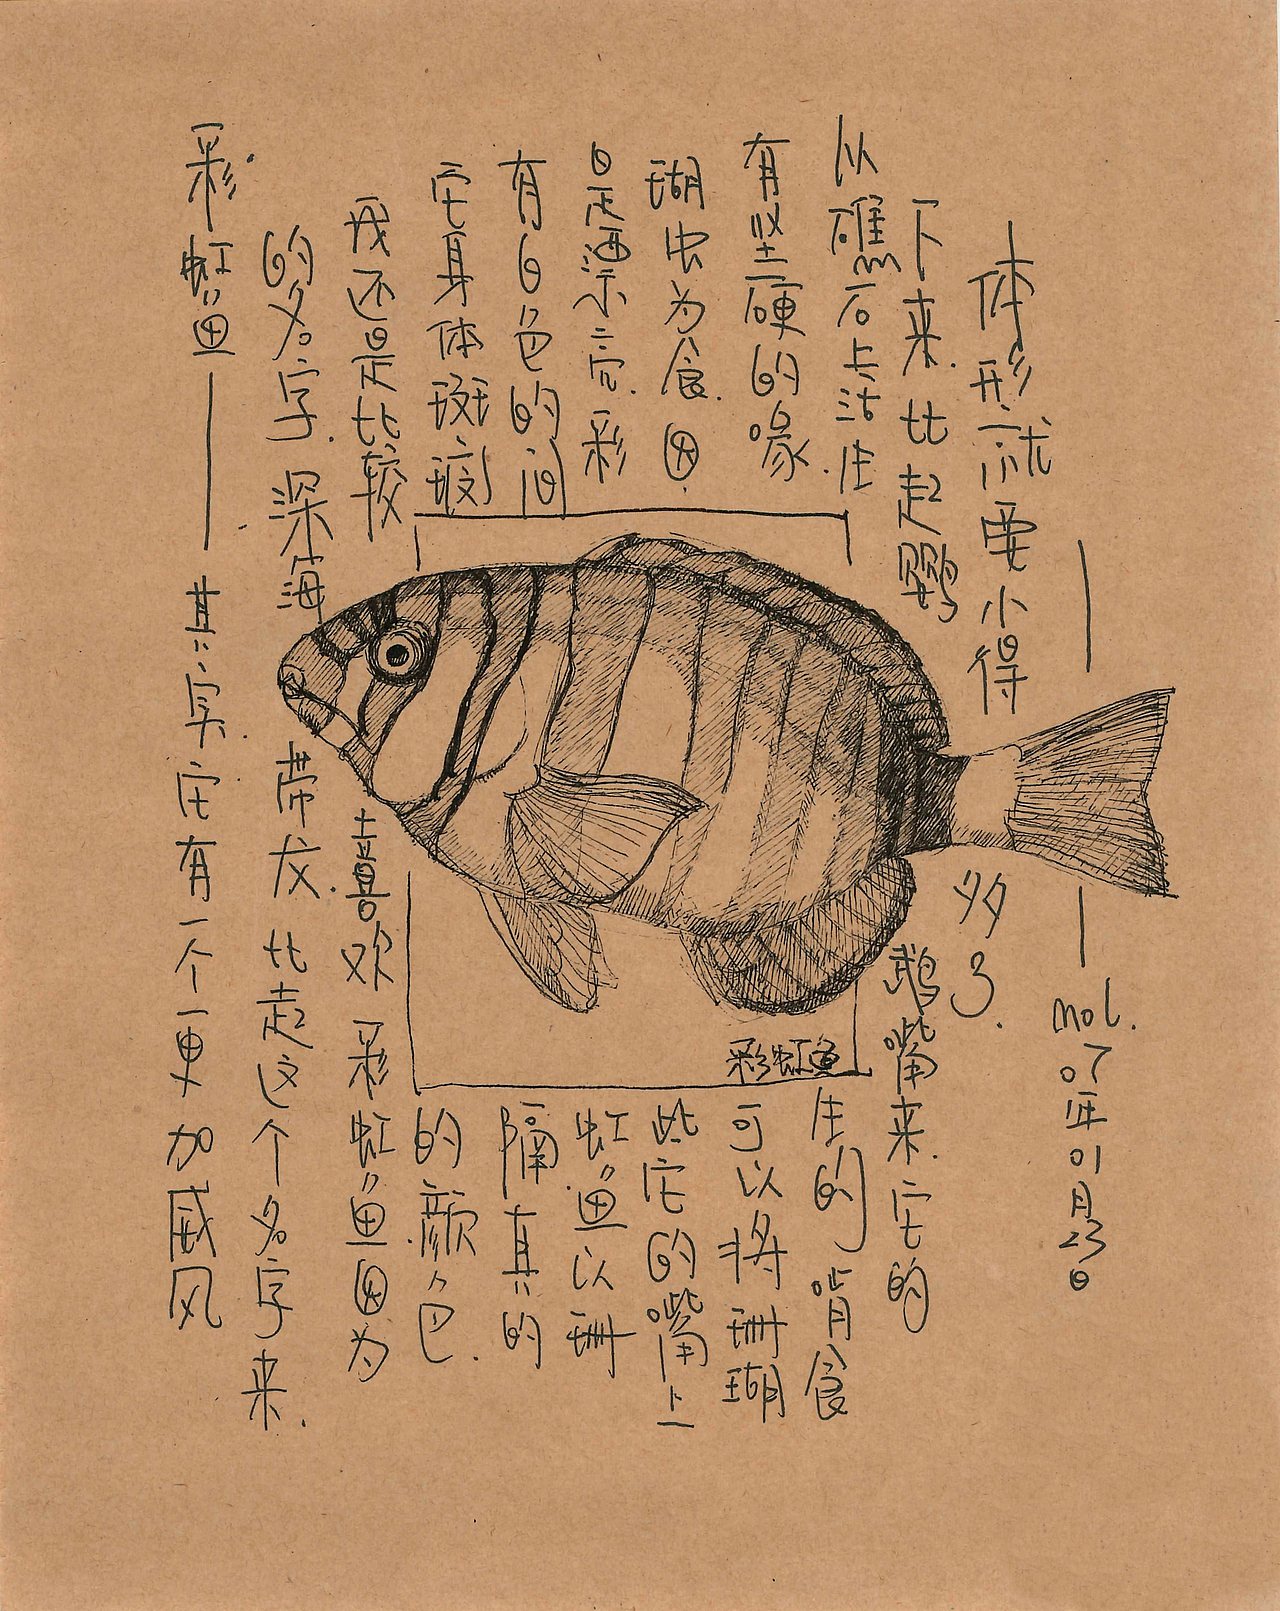 彩虹鱼——其实它有一个更加威风
的名字.深海带 比起这个名字来.
我还是比较喜欢彩虹鱼因为
它身体斑斓的颜色.
有白色的间隔真的
是漂亮.彩虹鱼以珊
瑚虫为食.因此它的嘴上
有坚硬的喙.可以将珊瑚
从礁石上活生生的啃食
下来.比起鹦鹉嘴来.它的
体形就要小得多了.
——mol.07年01月23日
彩虹鱼